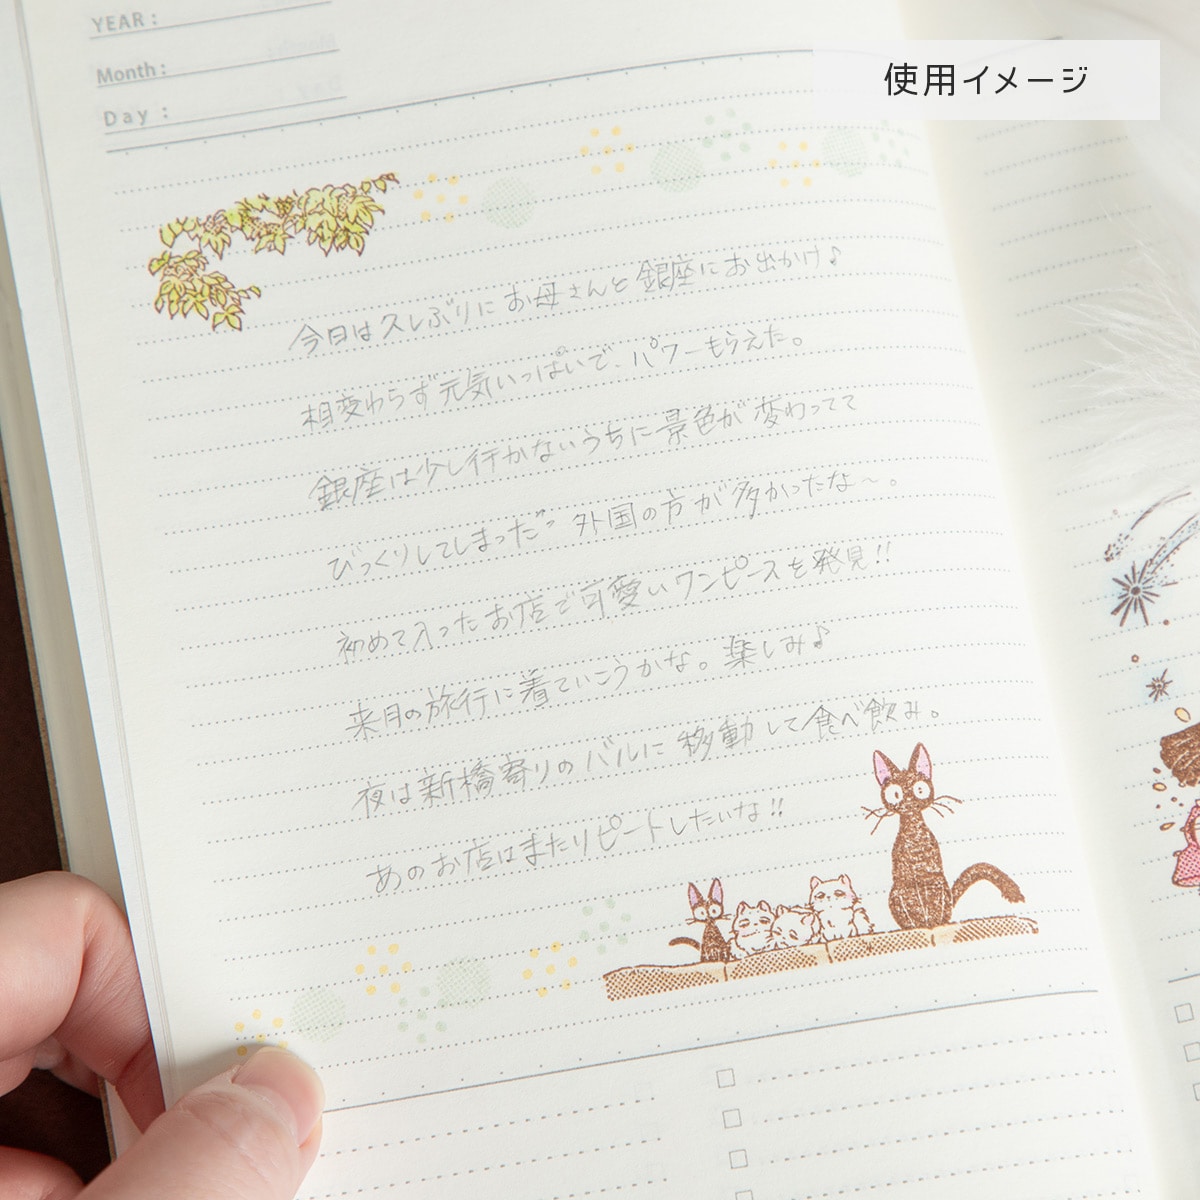 YEAR :
Month :
Day :
使用イメージ
今日は久しぶりにお母さんと銀座にお出かけ♪
相変わらず元気いっぱいで、パワーもらえた。
銀座は少し行かないうちに景色が変わってて
びっくりしてしまった💦外国の方が多かったな〜。
初めて入ったお店で可愛いワンピースを発見!!
来月の旅行に着ていこうかな。楽しみ♪
夜は新橋寄りのバルに移動して食べ飲み。
あのお店はまたリピートしたいな!!